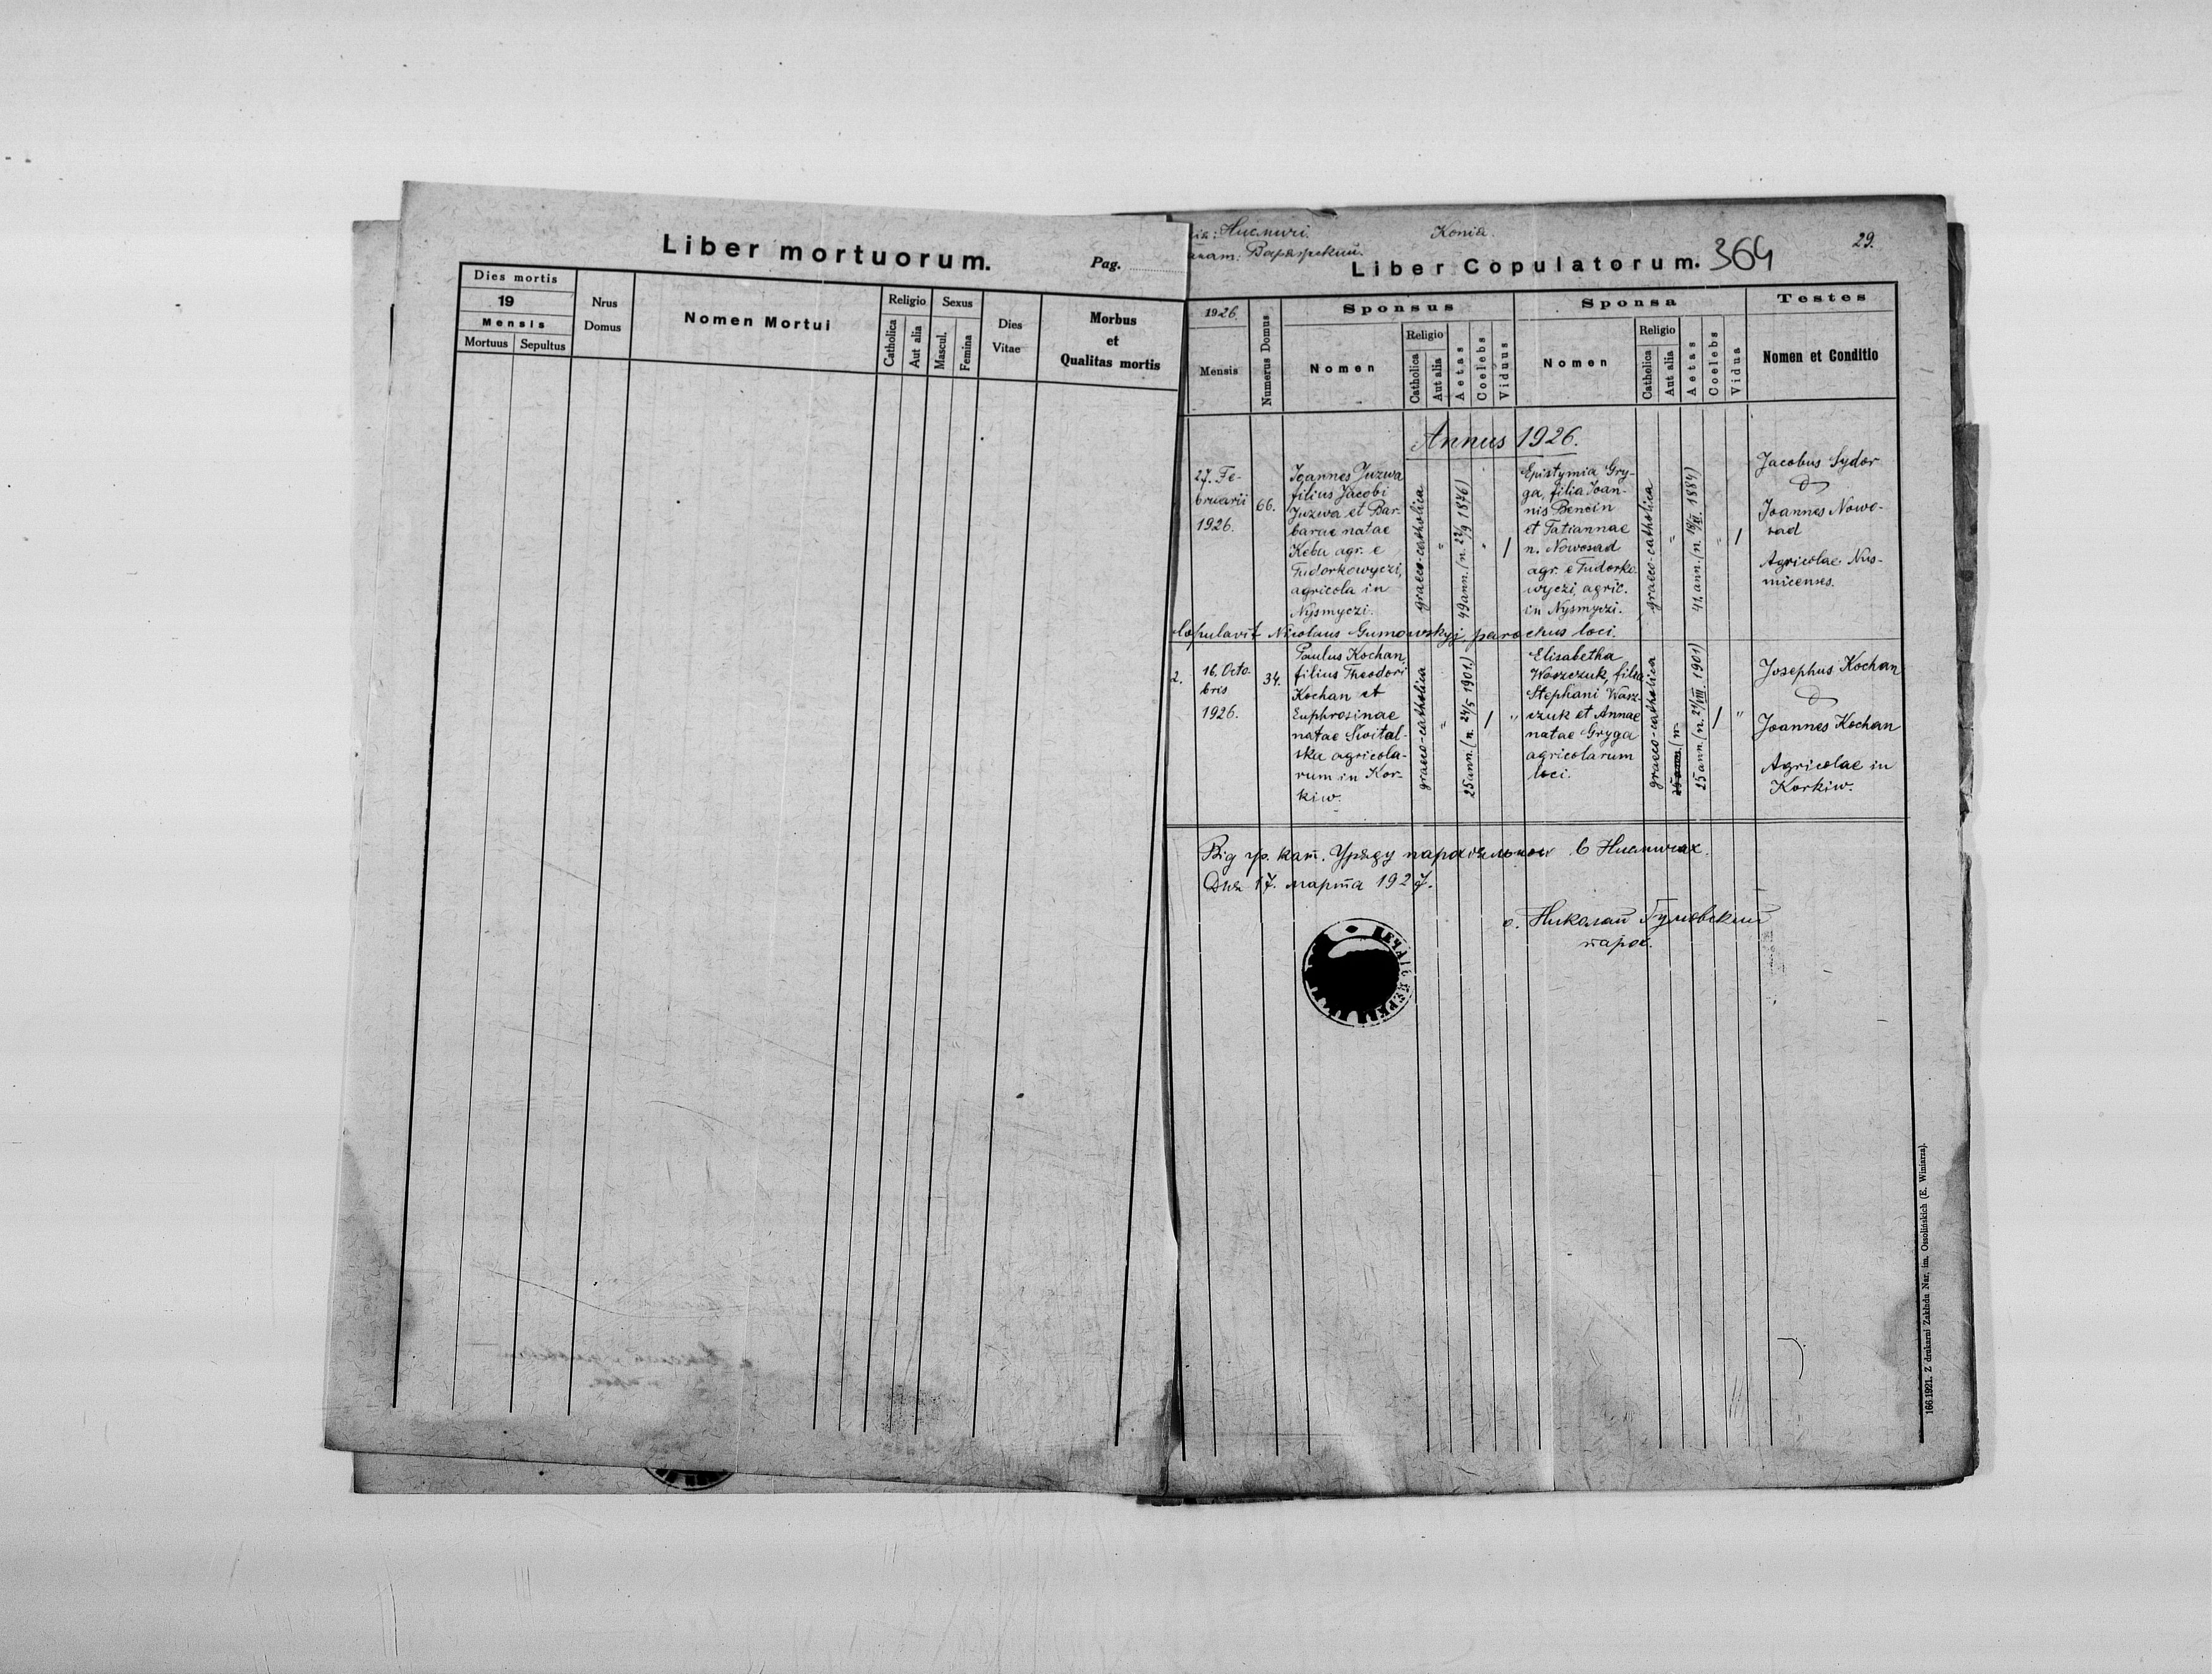 Liber mortuorum.
Pag.
Dies mortis
19
Mensis
Mortuus Sepultus
Nrus
Domus
Nomen Mortui
Religio
Catholica
Aut alia
Sexus
Mascul.
Femina
Dies
Vitae
Morbus
et
Qualitas mortis
Нисмичі. Копія.
Варяжский.
29.
Liber Copulatorum. 364
1926.
Mensis
Numerus Domus
Sponsus
Nomen
Religio
Catholica
Aut alia
Aetas
Coelebs
Viduus
Sponsa
Nomen
Religio
Catholica
Aut alia
Aetas
Coelebs
Vidua
Testes
Nomen et Conditio
Annus 1926.
27. Fe-
bruarii
1926.
66.
Joannes Juzwa
filius Jacobi
Juzwa et Bar-
barae natae
Kebu agr. e
Tudorkowyczi,
agricola in
Nysmyczi.
graeco-catholica
"
49 ann. (n. 22/9 1876)
"
/
Epistymia Gry-
ga, filia Joan-
nis Bencin
et Tatiannae
n. Nowosad
agr. e Tudorko
wyczi, agric.
in Nysmyczi.
graeco-catholica
"
41. ann. (n. 1884)
"
/
Jacobus Sydor
Joannes Nowo-
sad
Agricolae Nus-
micenses.
Copulavit Nicolaus Gumowskyj, parochus loci.
2.
16. Octo-
bris
1926.
34.
Paulus Kochan,
filius Theodori
Kochan et
Euphrosinae
natae Swital-
ska agricola-
rum in Kor-
kiw.
graeco-catholica
"
25 ann. (n. 24/5 1901.)
/
"
Elisabetha
Waszczuk, filia
Stephani Wasz-
czuk et Annae
natae Gryga
agricolarum
loci.
graeco-catholica
25 ann. (n.
25 ann. (n. 24/VIII. 1901)
/
"
Josephus Kochan
Joannes Kochan
Agricolae in
Korkiw.
Від гр. кат. Уряду парохіяльного в Нисмичах.
Дня 17. марта 1927.
о. Николай Гумовский
парох.
166.1921. Z drukarni Zakładu Nar. im. Ossolińskich (E. Winiarza).